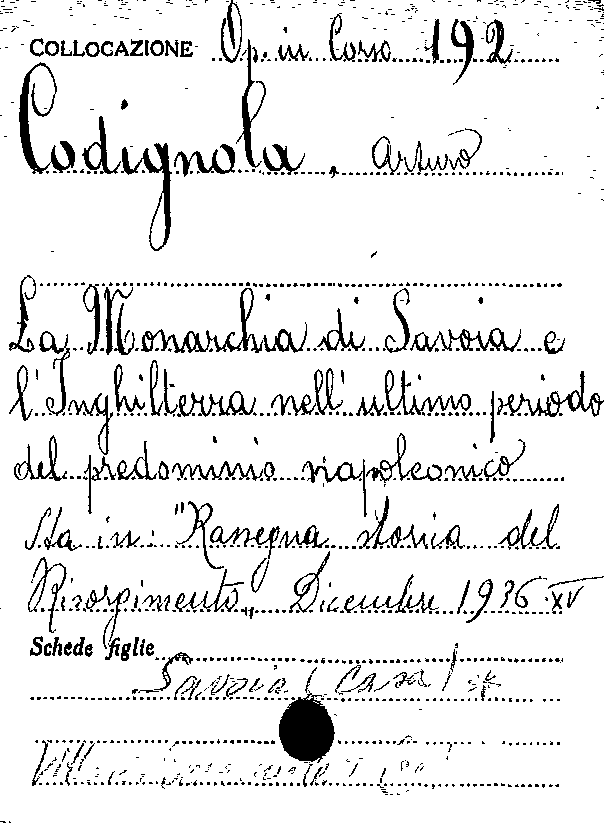 COLLOCAZIONE Op. in Corso 192
Codignola, Arturo
La Monarchia di Savoia e
l'Inghilterra nell'ultimo periodo
del predominio napoleonico
Sta in: "Rassegna storica del
Risorgimento„ Dicembre 1936-XV
Schede figlie
Savoia (Casa)